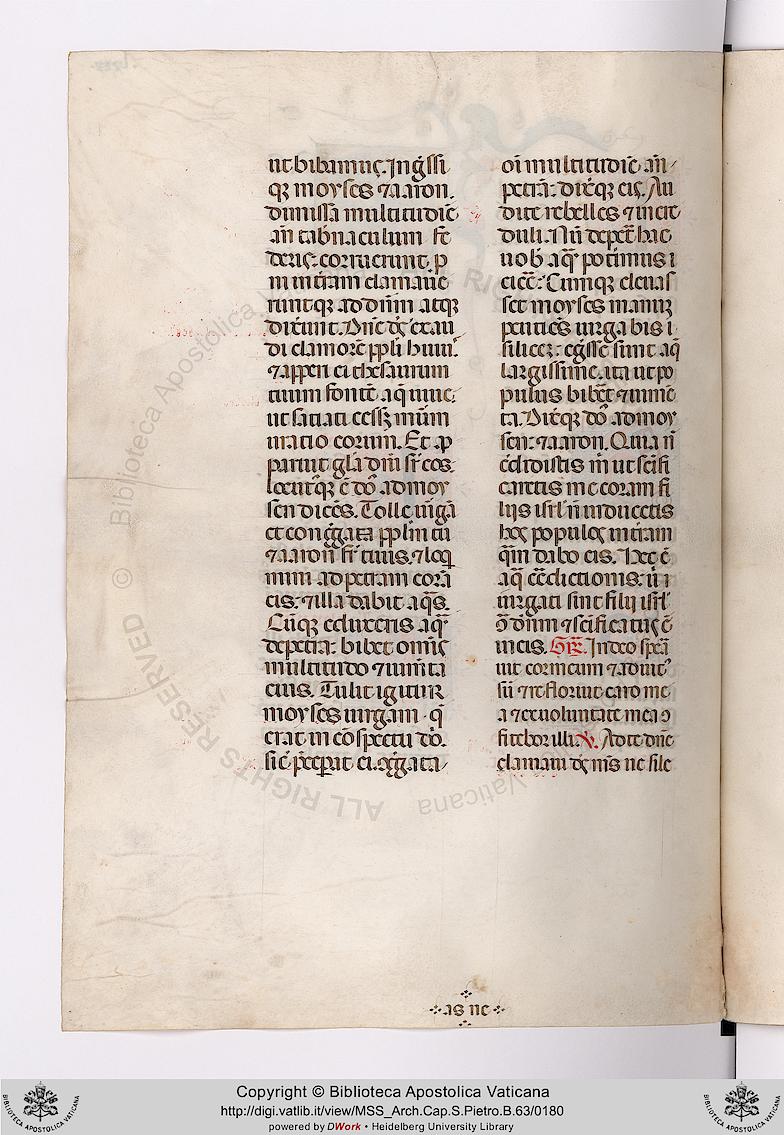 ut bibamus. Ingssi
q3 moyses ⁊ aaron.
dimissa multitudie
an tabnaculum fe
deris: corruerunt. p
ni in terram clamaue
runtq3 ad dnm atq3
dixerunt. Dne ds exau
di clamore ppli huius
⁊ apperi ei thesaurum
tuum fonte aque uiue
ut satiati cesset murm
uratio eorum. Et ap
paruit gla dni sr eos.
locutusq3 e dns ad moy
sen dices. Tolle uirga
et congrega pplm tu
⁊ aaron fr tuus. ⁊ loq
mini ad petram cora
eis: ⁊ illa dabit aqs.
Cuq3 eduxeris aqa
de petra: bibet omis
multitudo ⁊ iumeta
eius. Tulit igitur
moyses uirgam. q
erat in cospectu dni.
sic preceperat ei. cgrgata
oi multitudie an
petra: dixitq3 eis. Au
dite rebelles ⁊ incre
duli. Nu de petra hac
uob aqa potimus i
cere: Cumq3 eleuas
set moyses manu3
peutiens uirga bis i
silice3: egsse sunt aqe
largissime. ita ut po
pulus bibet ⁊ iume
ta. Dixitq3 dns ad moy
sen: ⁊ aaron. Quia n
credidistis m ut scifi
caretis me coram fi
liis isrl n introducetis
hos populos in terram
qm dabo eis. Hec e
aqa cdictionis: ubi i
iurgati sunt filii isrl
9 dnm ⁊ scificatus e
in eis. GR. In deo spera
uit cor meum ⁊ adiut9
su ⁊ refloruit caro me
a ⁊ ex uoluntate mea 9
fitebor illi. V. Ad te dne
clamaui ds ms ne sile
as me
Copyright © Biblioteca Apostolica Vaticana
http://digi.vatlib.it/view/MSS_Arch.Cap.S.Pietro.B.63/0180
powered by DWork • Heidelberg University Library